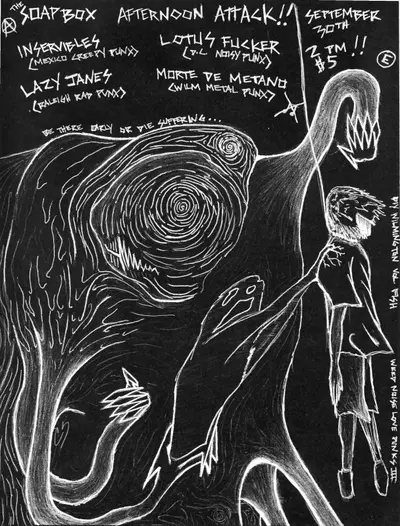 THE SOAPBOX AFTERNOON ATTACK!!
SEPTEMBER 30TH
2 PM !!
$5
A
E
INSERVIBLES
(MEXICO CREEPY PUNX)
LOTUS FUCKER
(D.C. NOISY PUNX)
LAZY JANES
(RALEIGH RAD PUNX)
MORTE DE METANO
(WILM METAL PUNX)
BE THERE EARLY OR DIE SUFFERING...
WEED NOISE LOVE PUNKS III